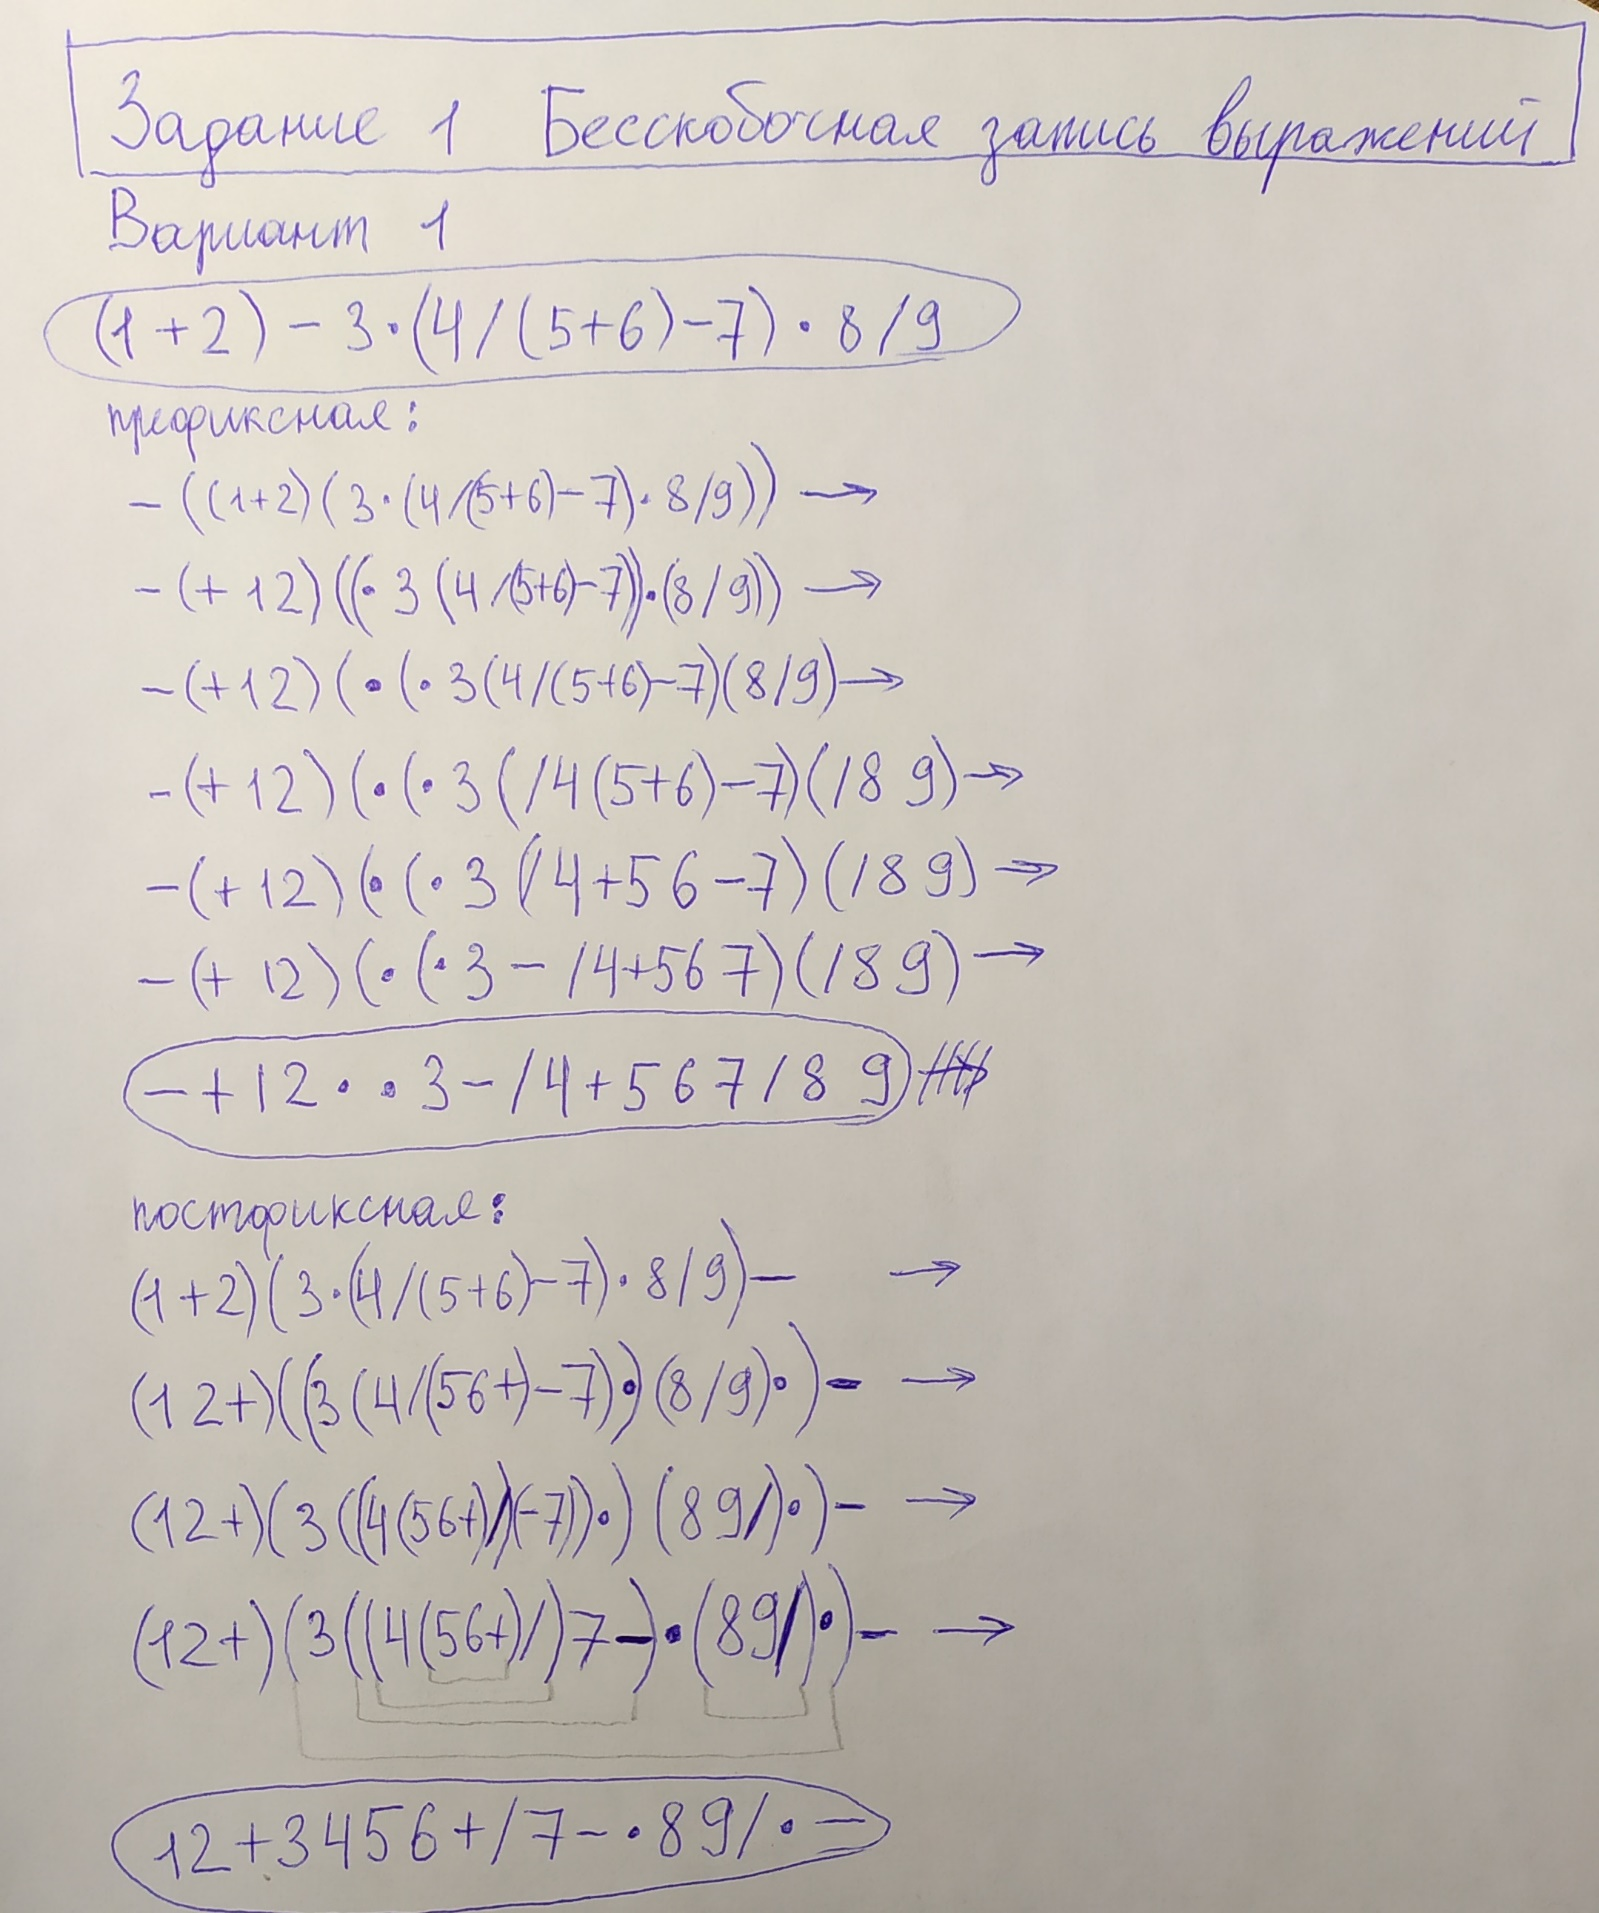 Задание 1 Бесскобочная запись выражений
Вариант 1
(1+2) - 3·(4/(5+6)-7)·8/9
префиксная:
-((1+2)(3·(4/(5+6)-7)·8/9)) →
-(+12)((·3(4/(5+6)-7))·(8/9)) →
-(+12)(·(·3(4/(5+6)-7)(8/9) →
-(+12)(·(·3(/4(5+6)-7)(/89) →
-(+12)(·(·3(/4+56-7)(/89) →
-(+12)(·(·3-/4+567)(/89) →
-+12··3-/4+567/89
постфиксная:
(1+2)(3·(4/(5+6)-7)·8/9)- →
(12+)((3(4/(56+)-7)·)(8/9)·)- →
(12+)(3((4(56+)/)(-7))·)(89/)·)- →
(12+)(3((4(56+)/)7-)·(89/)·)- →
12+3456+/7-·89/·-